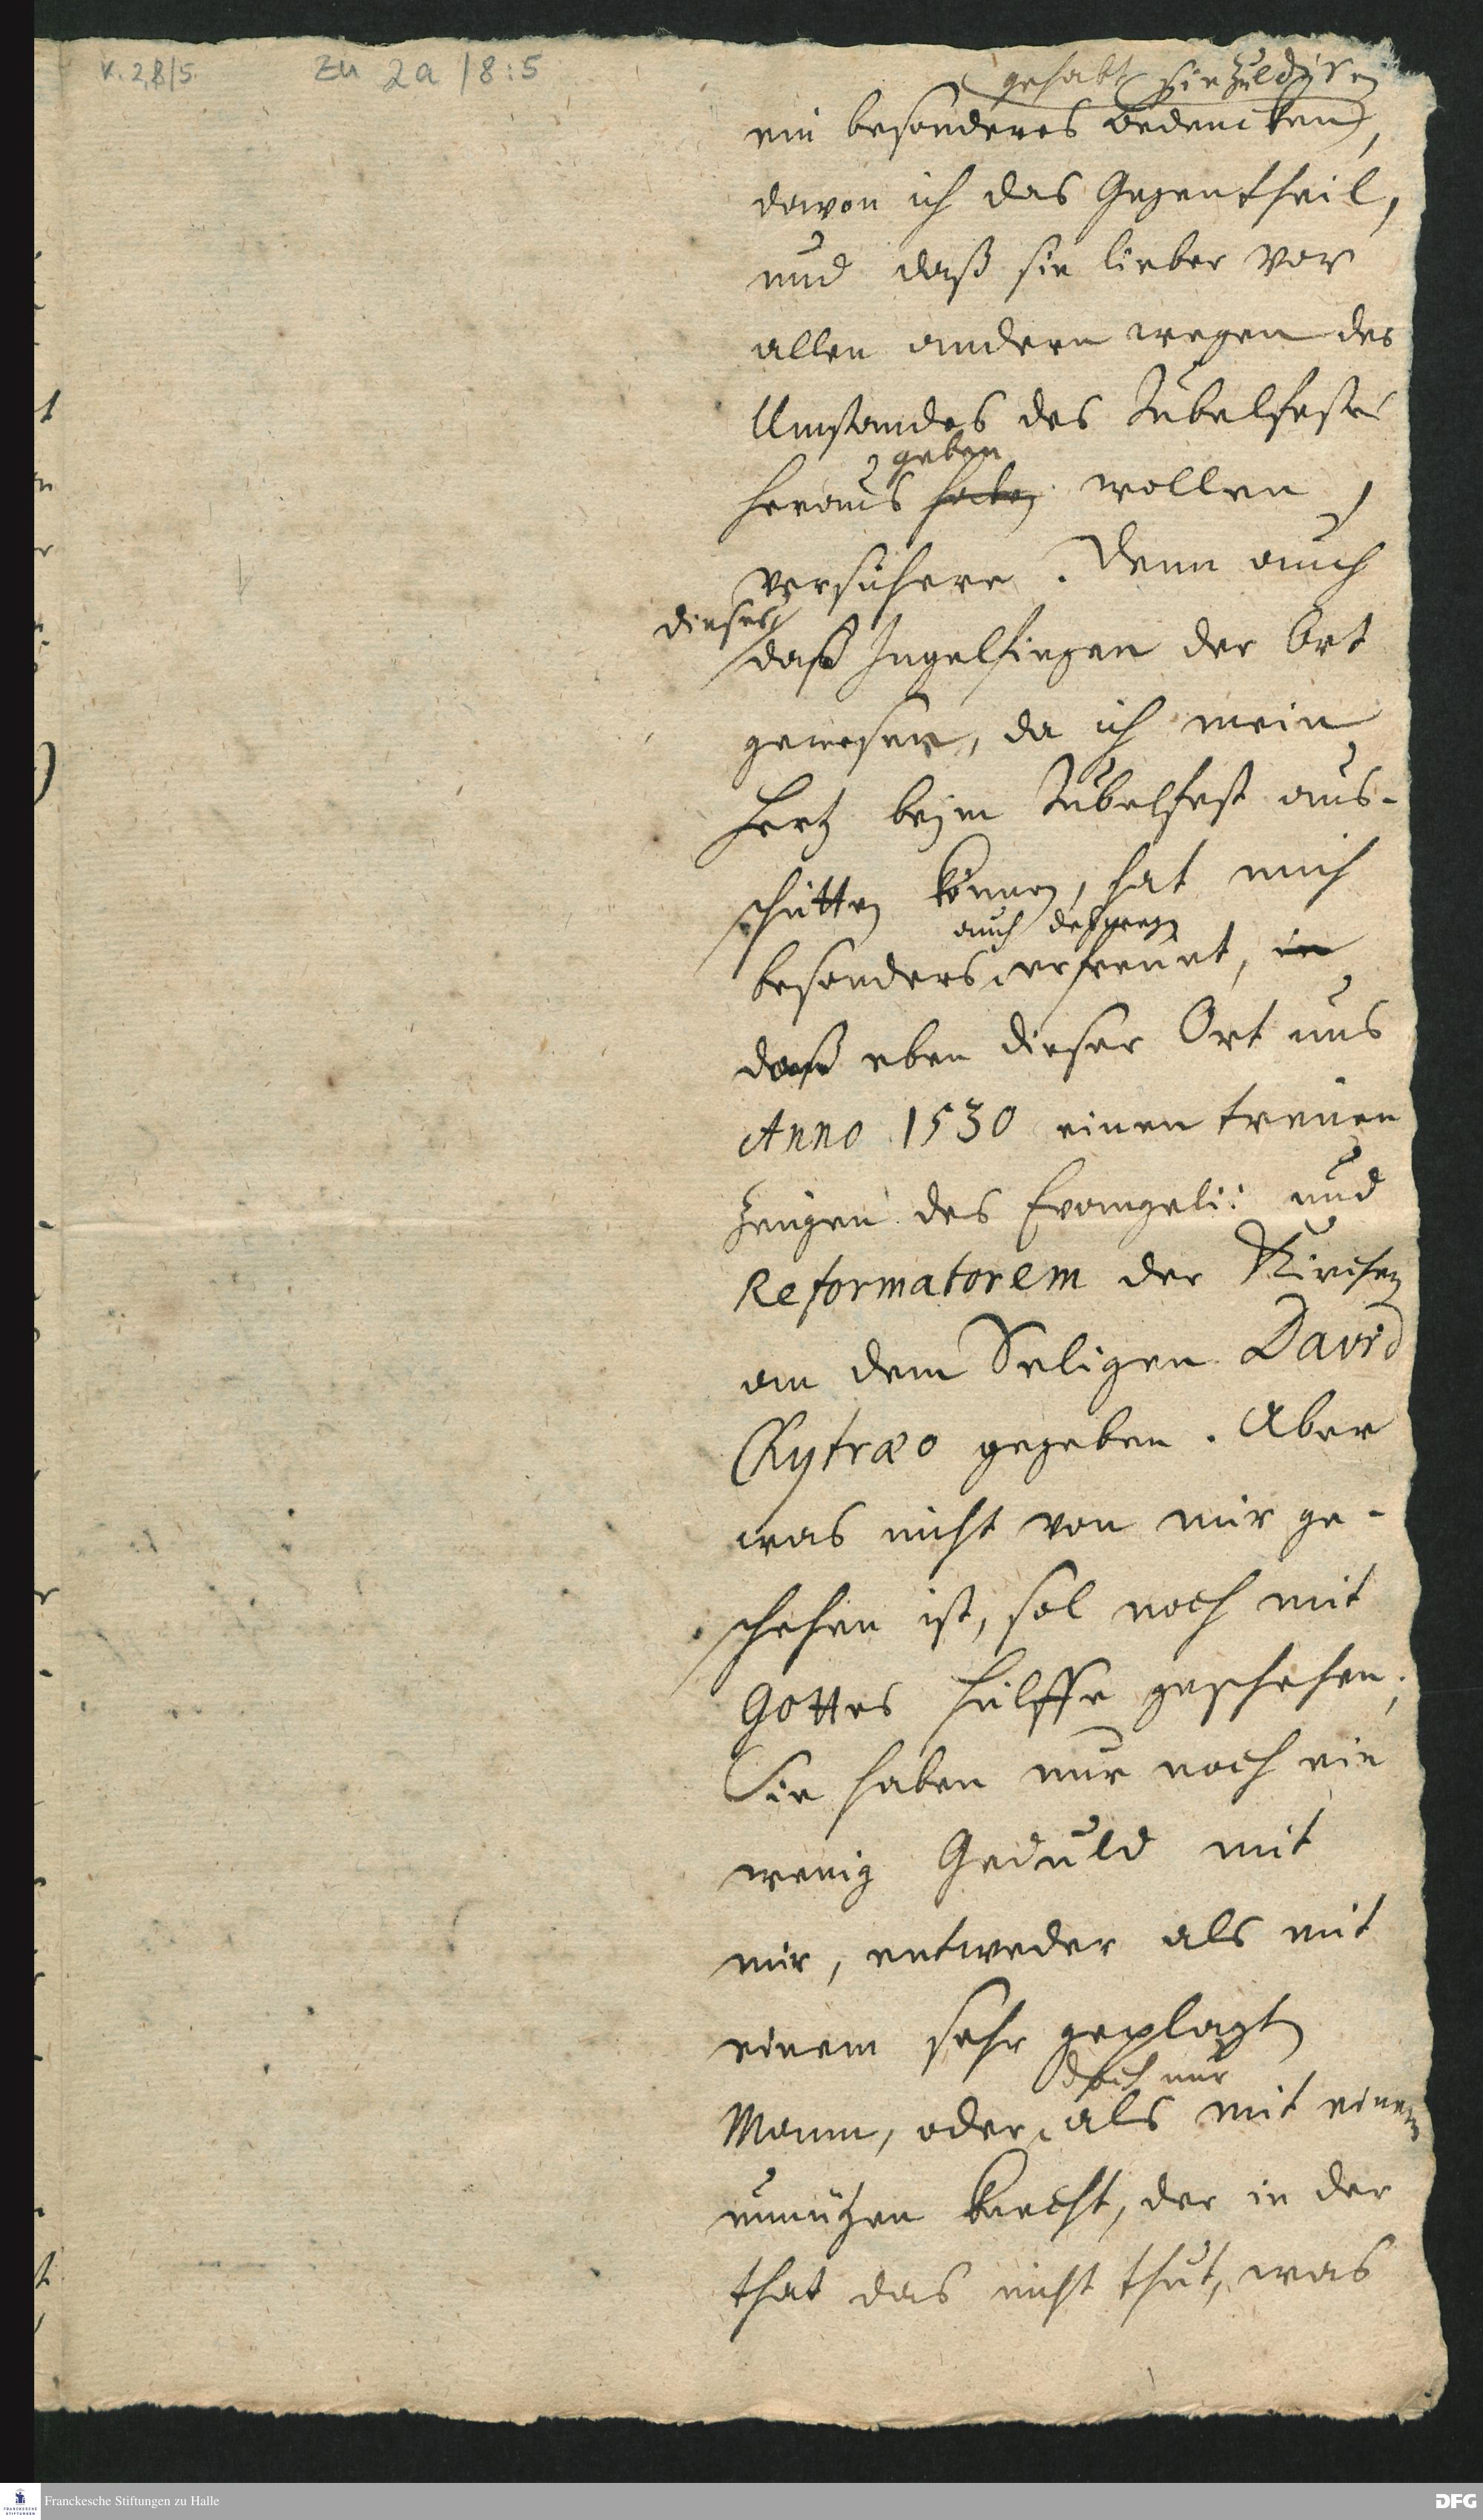 v. 2,8/5. zu 2a /8:5
gehabt sie zu ediren
ein besonderes bedencken,
davon ich das Gegentheil,
und daß sie lieber vor
allen andern wegen des
Umstandes des Jubelfestes
geben
heraus haben wollen,
versichere. Denn auch
dieses,
daß Ingelfingen der Ort
gewesen, da ich mein
Hertz beym Jubelfest aus-
schütten können, hat mich
auch deßwegen
besonders erfreuet, in
daß eben dieser Ort uns
Anno 1530 einen treuen
Zeugen des Evangelii und
Reformatorem der Kirchen
an dem Seligen David
Chytræo gegeben. Aber
was nicht von mir ge-
schehen ist, sol noch mit
Gottes Hülffe geschehen;
Sie haben nur noch ein
wenig Geduld mit
mir, entweder als mit
einem sehr geplagten
doch nur
Mann, oder als mit einem
unnützen Knecht, der in der
that das nicht thut, was
Franckesche Stiftungen zu Halle
DFG